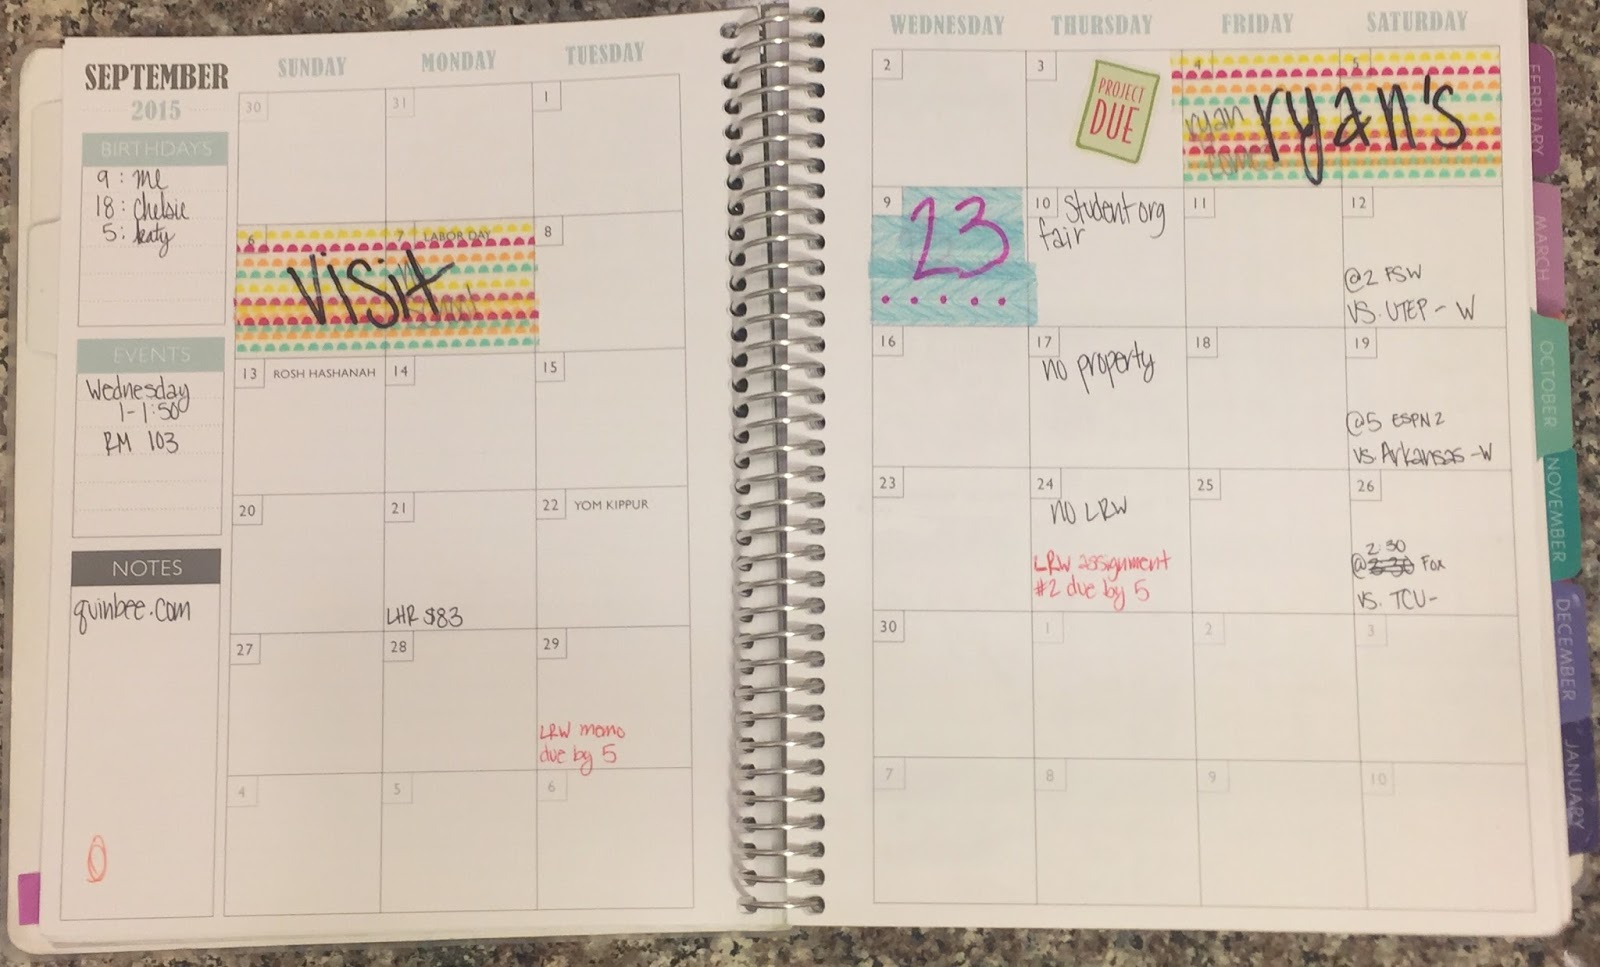 SEPTEMBER
2015
BIRTHDAYS
9 : me
18 : Chelsie
5 : katy
EVENTS
Wednesday
1-1:50
RM 103
NOTES
quinbee.com
SUNDAY MONDAY TUESDAY WEDNESDAY THURSDAY FRIDAY SATURDAY
30 31 1 2 3 4 5
PROJECT
DUE
ryan
come
ryan's
6 7 LABOR DAY 8 9 10 11 12
visit
school
23
Student org
fair
@2 FSW
VS. UTEP - W
13 ROSH HASHANAH 14 15 16 17 18 19
no property
@5 ESPN2
vs. Arkansas - W
20 21 22 YOM KIPPUR 23 24 25 26
LHR $83
no LRW
LRW assignment
#2 due by 5
2:30
@ 3:30 Fox
vs. TCU-
27 28 29 30 1 2 3
LRW memo
due by 5
4 5 6 7 8 9 10
FEBRUARY
MARCH
OCTOBER
NOVEMBER
DECEMBER
JANUARY